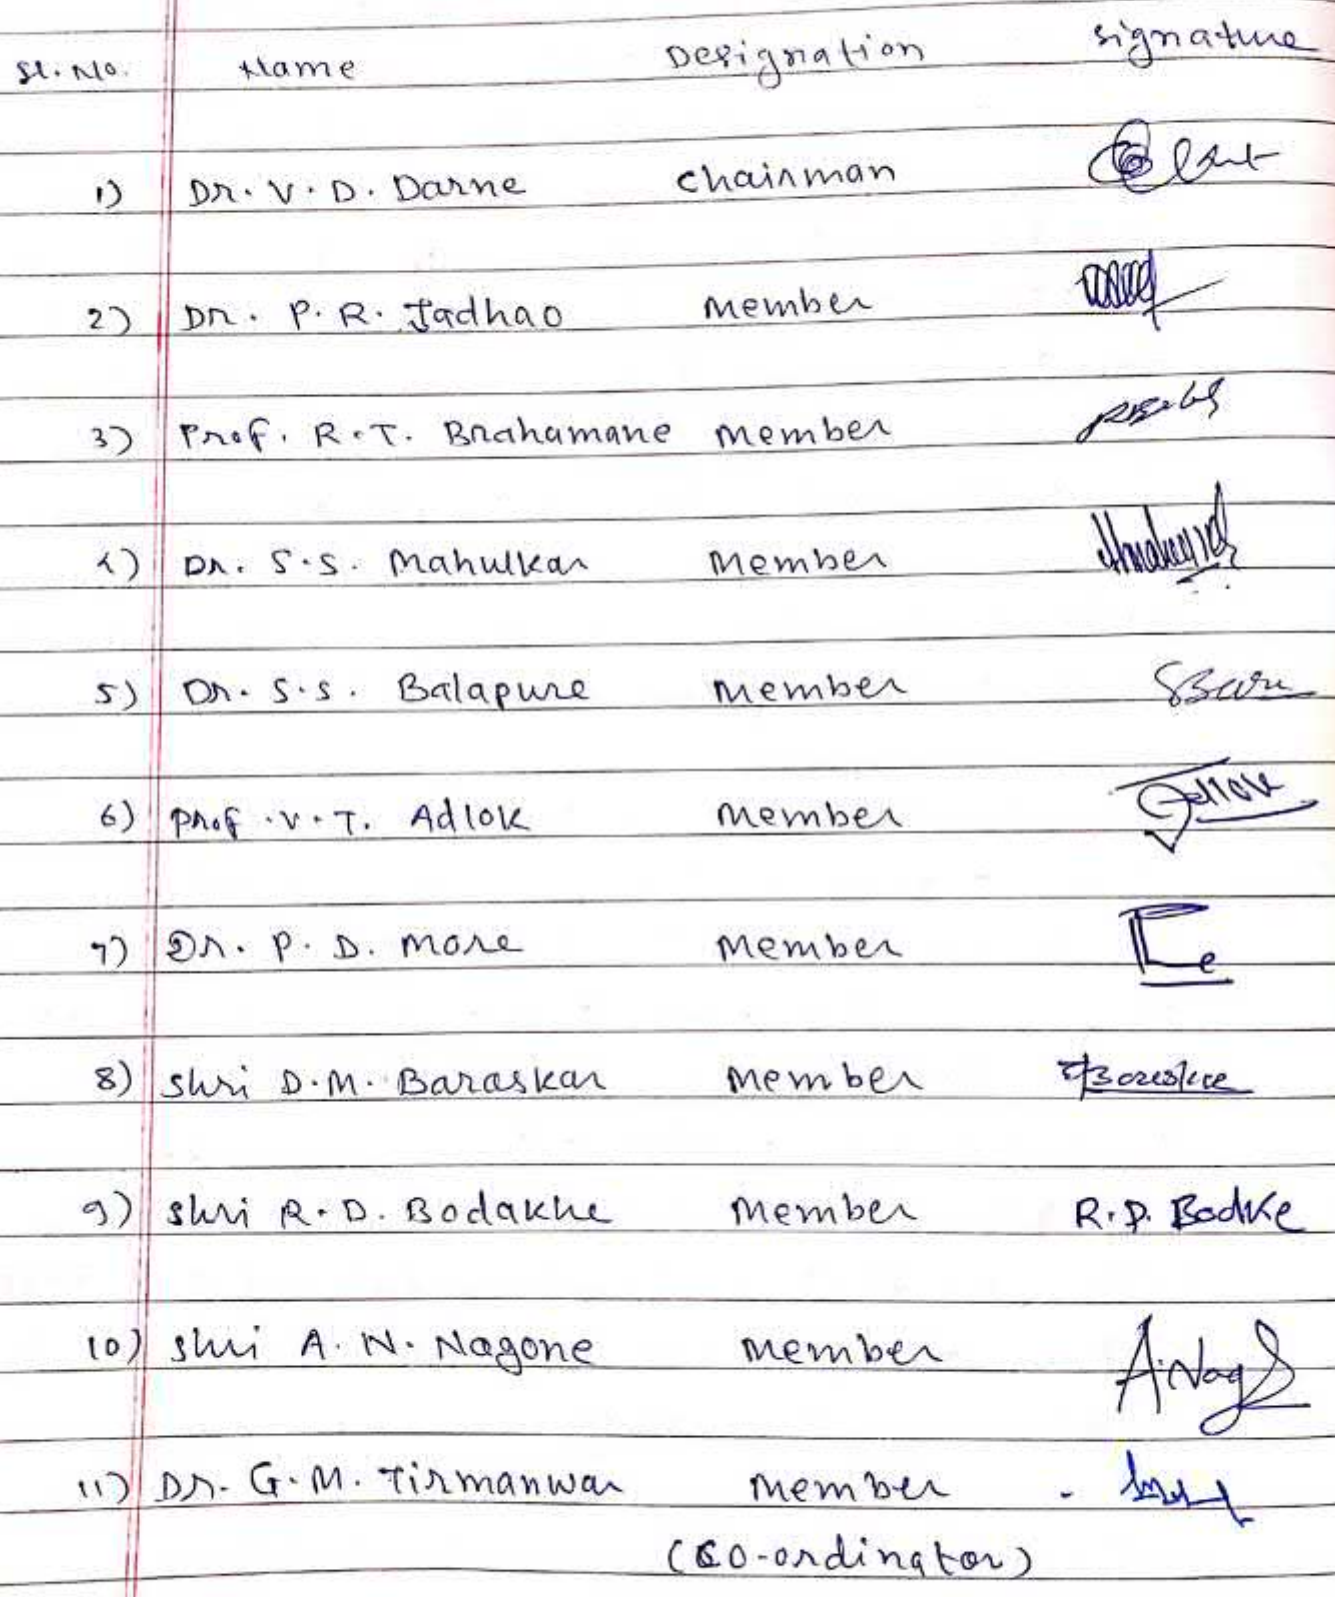 Sl. No. Name Designation Signature
1) Dr. V. D. Darne Chairman
2) Dr. P. R. Jadhao Member
3) Prof. R. T. Brahamane Member
4) Dr. S. S. Mahulkar Member
5) Dr. S. S. Balapure Member
6) Prof. V. T. Adlok Member Adlok
7) Dr. P. D. More Member
8) Shri D. M. Baraskar Member
9) Shri R. D. Bodakhe Member R. D. Bodke
10) Shri A. N. Nagone Member
11) Dr. G. M. Tirmanwar Member
(Co-ordinator)